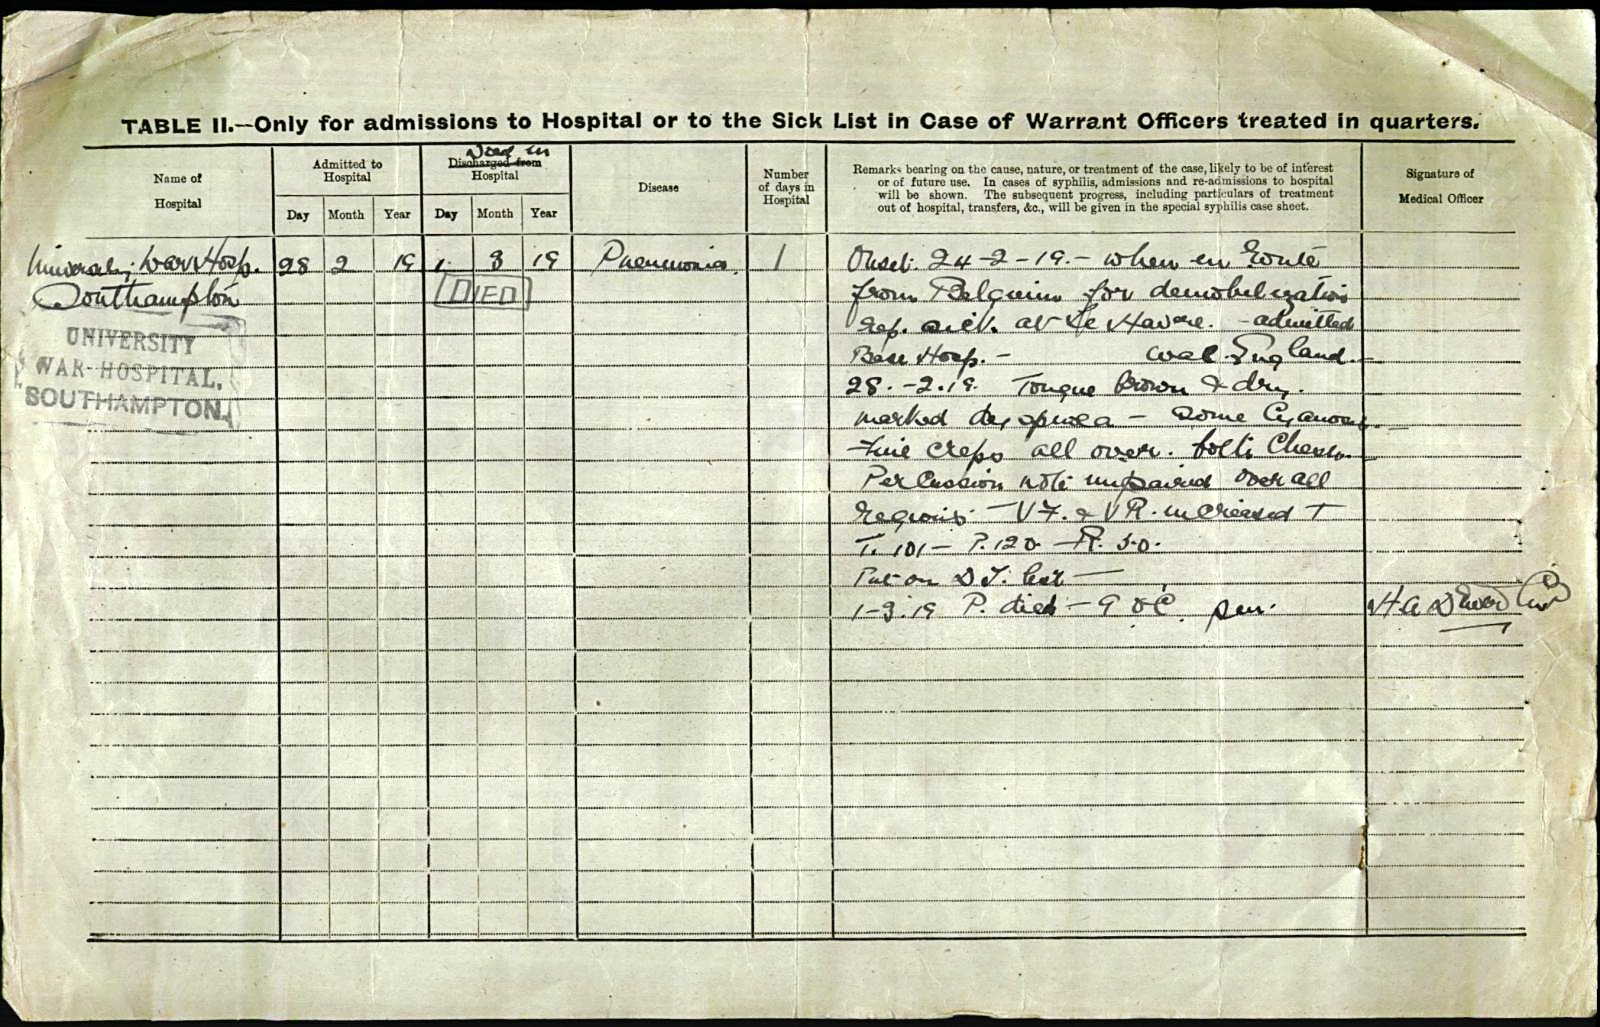 TABLE II.—Only for admissions to Hospital or to the Sick List in Case of Warrant Officers treated in quarters.
Name of
Hospital
Admitted to
Hospital
Died in
Discharged from
Hospital
Disease
Number
of days in
Hospital
Remarks bearing on the cause, nature, or treatment of the case, likely to be of interest
or of future use. In cases of syphilis, admissions and re-admissions to hospital
will be shown. The subsequent progress, including particulars of treatment
out of hospital, transfers, &c., will be given in the special syphilis case sheet.
Signature of
Medical Officer
Day Month Year Day Month Year
University War Hosp. 28 2 19 1 3 19 Pneumonia. 1 Onset. 24-2-19. - when en route
Southampton DIED from Belgium for demobilization
rep. sick at Le Havre. - admitted
UNIVERSITY
WAR HOSPITAL,
SOUTHAMPTON.
Base Hosp. - England -
28.-2.19. Tongue brown & dry.
marked dyspnoea - some Cyanosis. -
Fine creps all over. both Chests. -
Percussion note impaired over all
regions - V F. & V R. increased +
T. 101 - P. 120 - R. 50.
Put on D.I. list -
1-3.19 P. died - 9 o'C. pm. H. A.